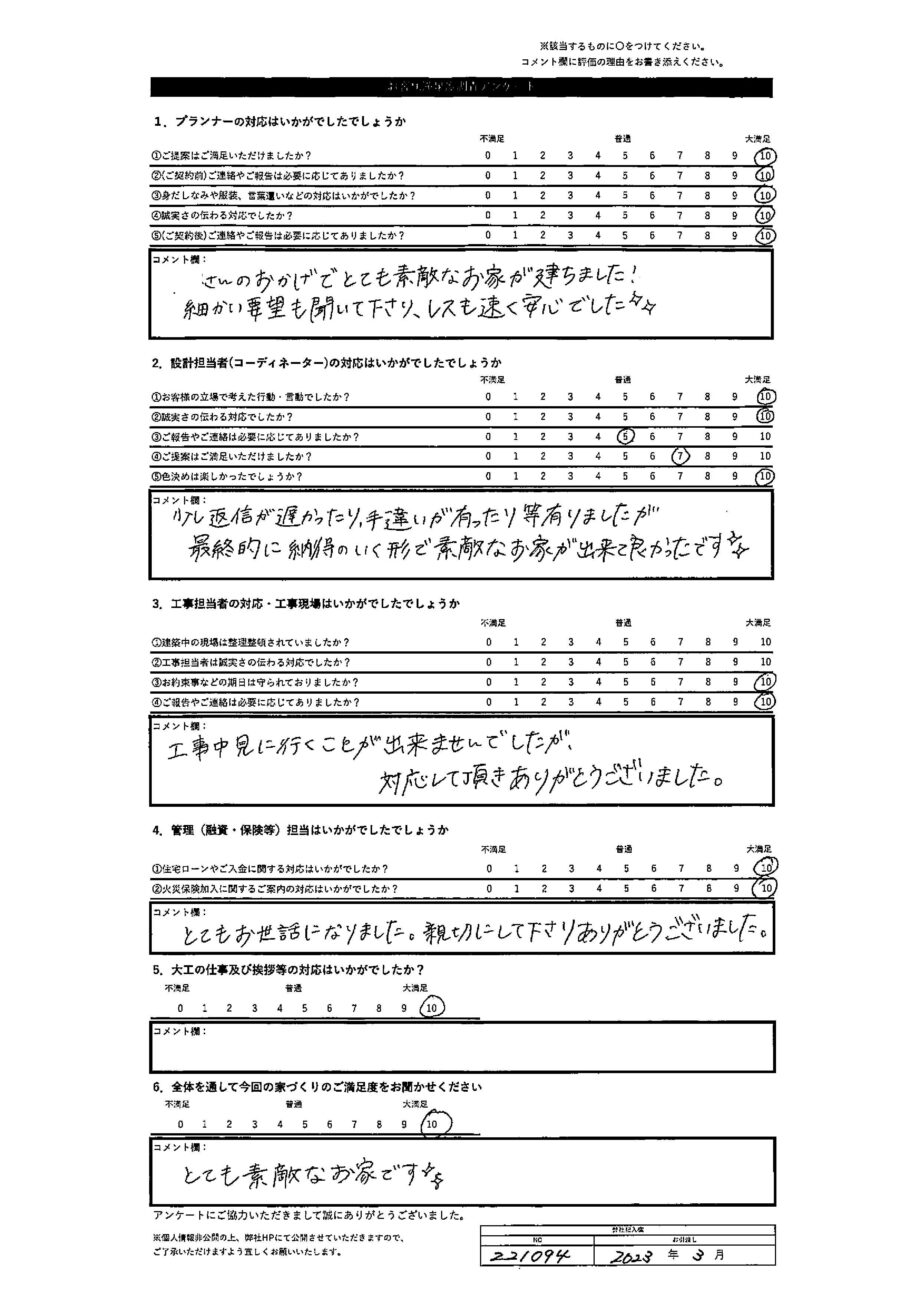 ※該当するものに〇をつけてください。
コメント欄に評価の理由をお書き添えください。
1．プランナーの対応はいかがでしたでしょうか
不満足 普通 大満足
①ご提案はご満足いただけましたか？ 0 1 2 3 4 5 6 7 8 9 10
②(ご契約前)ご連絡やご報告は必要に応じてありましたか？ 0 1 2 3 4 5 6 7 8 9 10
③身だしなみや服装、言葉遣いなどの対応はいかがでしたか？ 0 1 2 3 4 5 6 7 8 9 10
④誠実さの伝わる対応でしたか？ 0 1 2 3 4 5 6 7 8 9 10
⑤(ご契約後)ご連絡やご報告は必要に応じてありましたか？ 0 1 2 3 4 5 6 7 8 9 10
コメント欄：
さんのおかげでとても素敵なお家が建ちました！
細かい要望も聞いて下さり、レスも速く安心でした
2．設計担当者(コーディネーター)の対応はいかがでしたでしょうか
不満足 普通 大満足
①お客様の立場で考えた行動・言動でしたか？ 0 1 2 3 4 5 6 7 8 9 10
②誠実さの伝わる対応でしたか？ 0 1 2 3 4 5 6 7 8 9 10
③ご報告やご連絡は必要に応じてありましたか？ 0 1 2 3 4 5 6 7 8 9 10
④ご提案はご満足いただけましたか？ 0 1 2 3 4 5 6 7 8 9 10
⑤色決めは楽しかったでしょうか？ 0 1 2 3 4 5 6 7 8 9 10
コメント欄：
少し返信が遅かったり、手違いが有ったり等有りましたが
最終的に納得のいく形で素敵なお家が出来て良かったです
3．工事担当者の対応・工事現場はいかがでしたでしょうか
不満足 普通 大満足
①建築中の現場は整理整頓されていましたか？ 0 1 2 3 4 5 6 7 8 9 10
②工事担当者は誠実さの伝わる対応でしたか？ 0 1 2 3 4 5 6 7 8 9 10
③お約束事などの期日は守られておりましたか？ 0 1 2 3 4 5 6 7 8 9 10
④ご報告やご連絡は必要に応じてありましたか？ 0 1 2 3 4 5 6 7 8 9 10
コメント欄：
工事中見に行くことが出来ませんでしたが、
対応して頂きありがとうございました。
4．管理（融資・保険等）担当はいかがでしたでしょうか
不満足 普通 大満足
①住宅ローンやご入金に関する対応はいかがでしたか？ 0 1 2 3 4 5 6 7 8 9 10
②火災保険加入に関するご案内の対応はいかがでしたか？ 0 1 2 3 4 5 6 7 8 9 10
コメント欄：
とてもお世話になりました。親切にして下さりありがとうございました。
5．大工の仕事及び挨拶等の対応はいかがでしたか？
不満足 普通 大満足
0 1 2 3 4 5 6 7 8 9 10
コメント欄：
6．全体を通して今回の家づくりのご満足度をお聞かせください
不満足 普通 大満足
0 1 2 3 4 5 6 7 8 9 10
コメント欄：
とても素敵なお家です
アンケートにご協力いただきまして誠にありがとうございました。
※個人情報非公開の上、弊社HPにて公開させていただきますので、
ご了承いただけますよう宜しくお願いいたします。
弊社記入欄
NO お引渡し
221094 2023 年 3 月